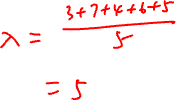 λ = (3+7+4+6+5)/5
= 5